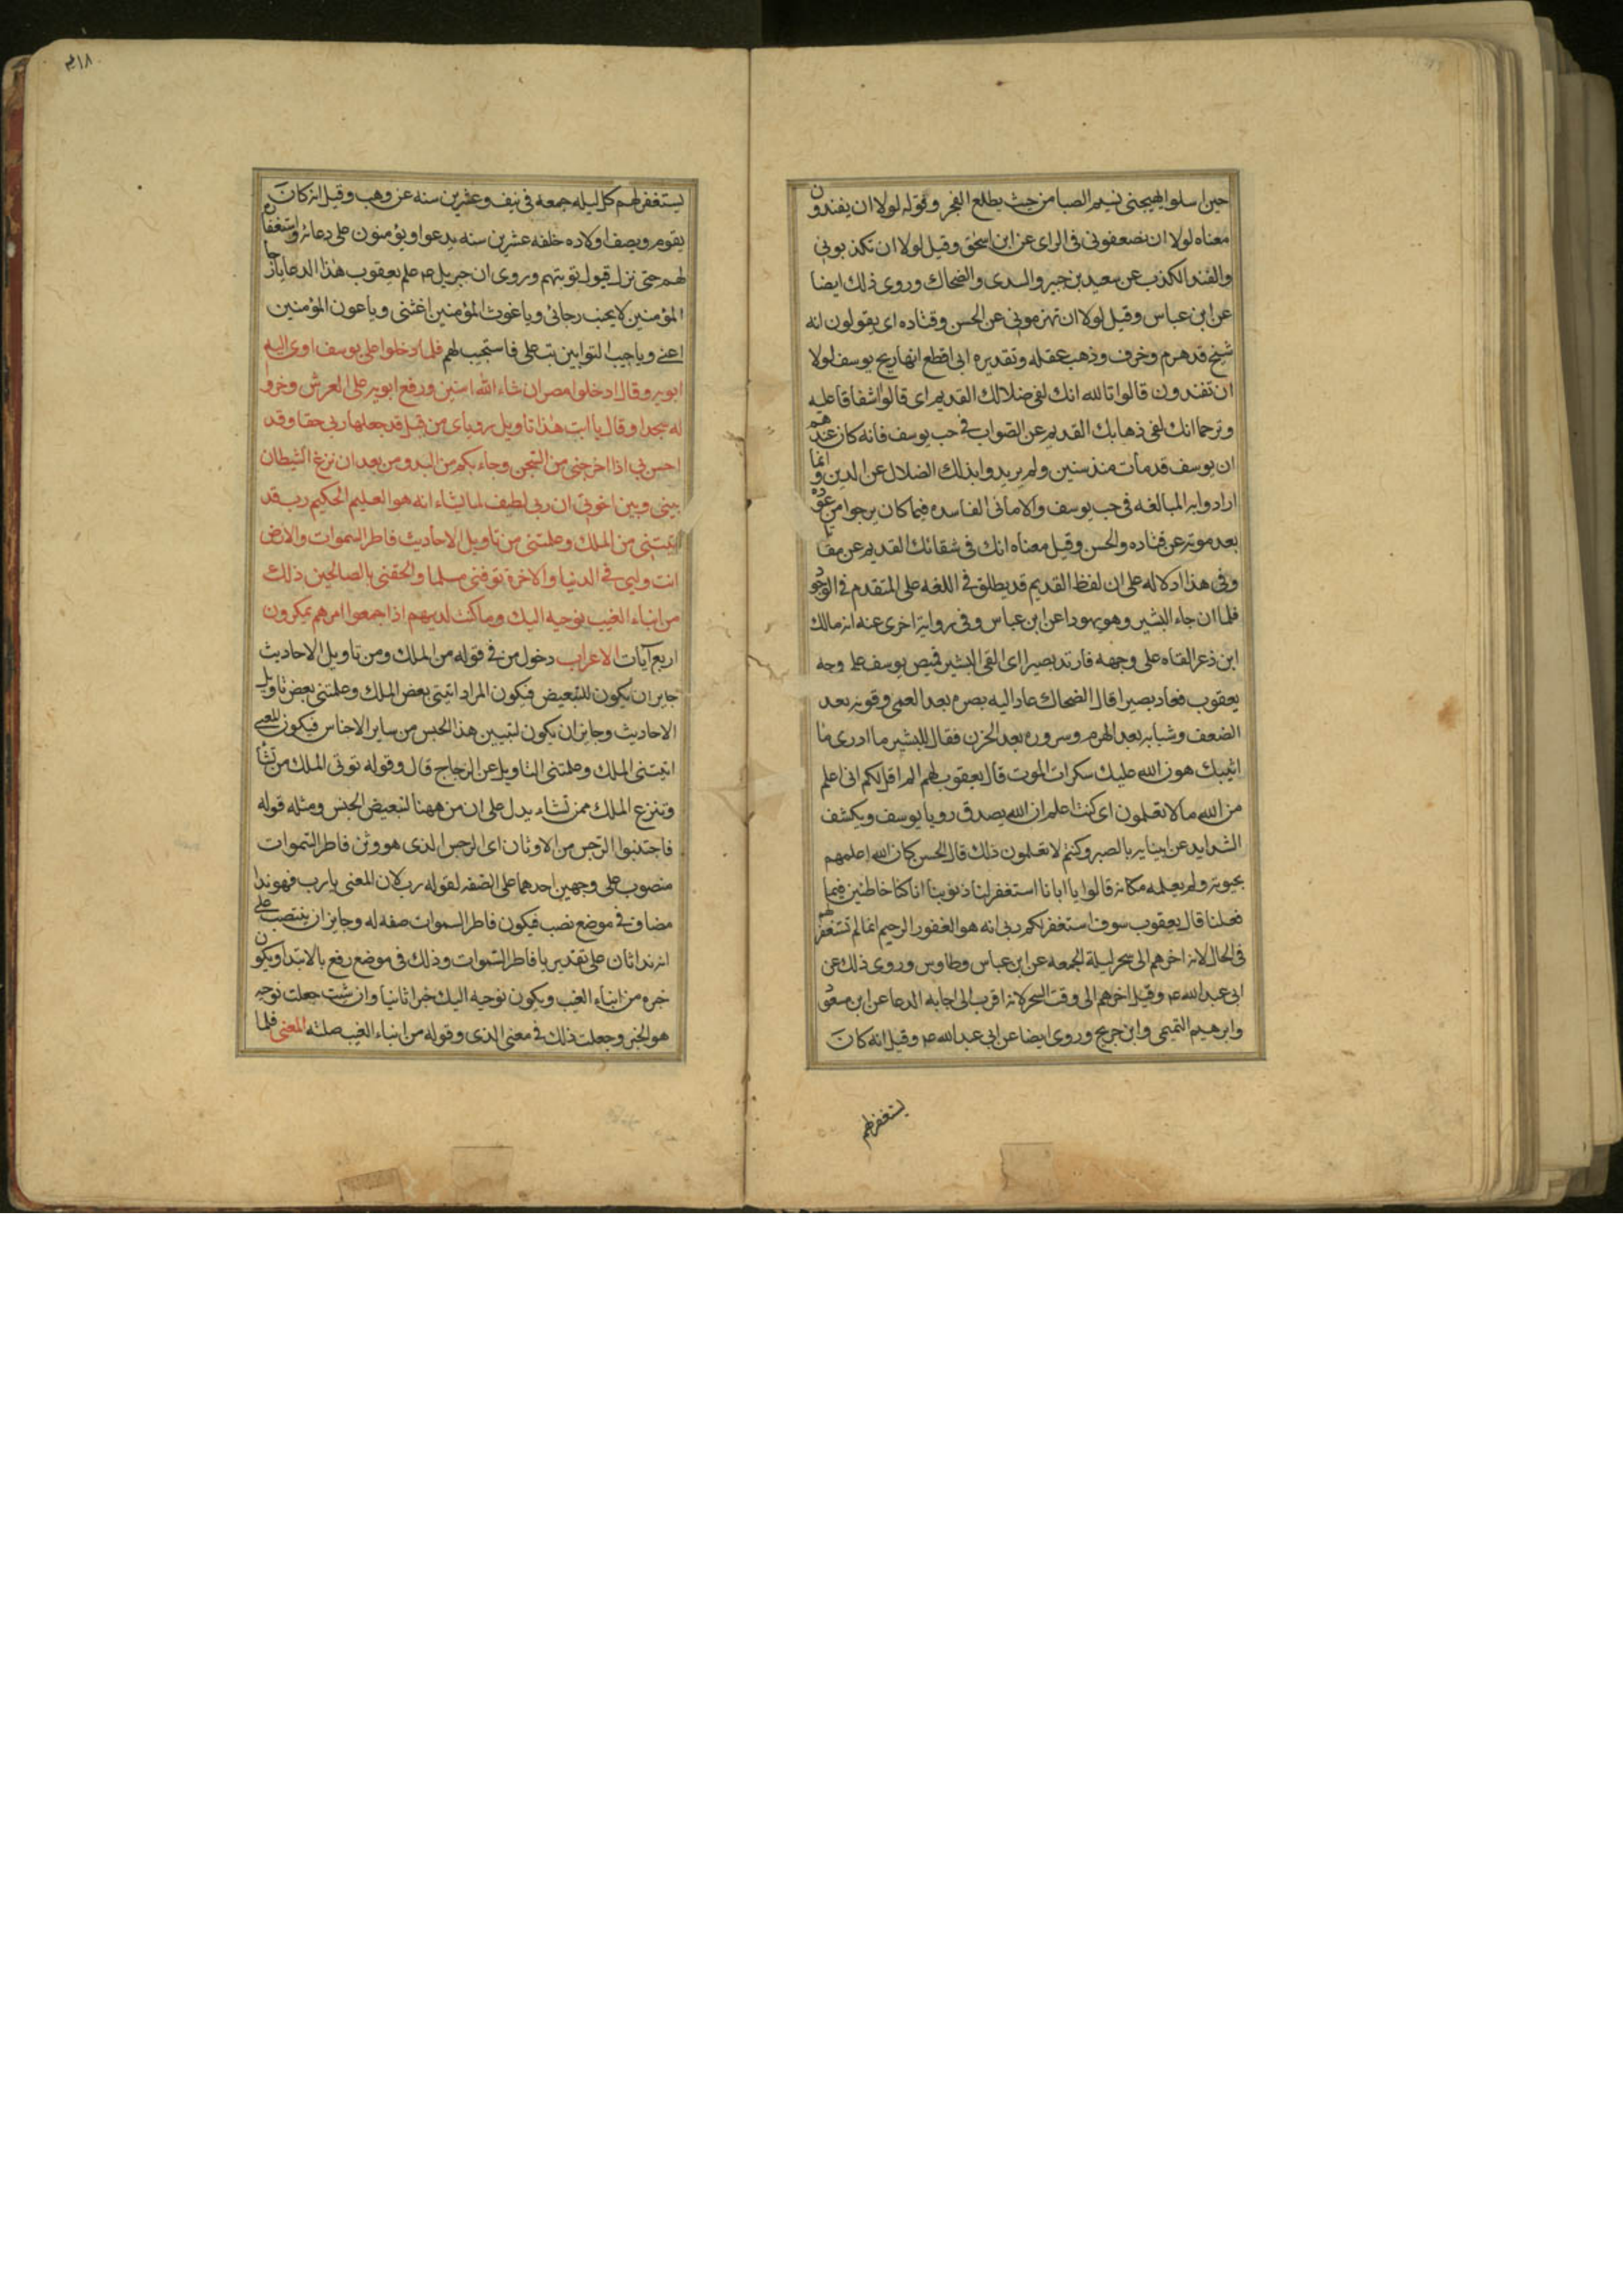 حين اسلوا يهيجنى نسيم الصبا من حيث يطلع الفجر وقوله لولا ان يفندون
معناه لولا ان تضعفونى فى الراى عن ابن اسحق وقيل لولا ان تكذبونى
والفند الكذب عن سعيد بن جبير والسدى والضحاك وروى ذلك ايضا
عن ابن عباس وقيل لولا ان تهزمونى عن الحسن وقتاده اى يقولون انه
شيخ قد هرم وخرف وذهب عقله وتقديره انى اقطع انها ريح يوسف لولا
ان تفندون قالوا تالله انك لفى ضلالك القديم اى قالوا اشفاقا عليه
وترحما انك لفى ذهابك القديم عن الصواب فى حب يوسف فانه كان عندهم
ان يوسف قد مات منذ سنين ولم يريدوا بذلك الضلال عن الدين وانما
ارادوا به المبالغه فى حب يوسف والامانى الفاسده فيما كان يرجوا من عوده
بعد موته عن قتاده والحسن وقيل معناه انك فى شقائك القديم عن مقا
وفى هذا دلاله على ان لفظ القديم قد يطلق فى اللغه على المتقدم فى الوجود
فلما ان جاء البشير وهو يهودا عن ابن عباس وفى رواية اخرى عنه انه مالك
ابن ذعر القاه على وجهه فارتد بصيرا اى القى البشير قميص يوسف على وجه
يعقوب فعاد بصيرا قال الضحاك عاد اليه بصره بعد العمى وقوته بعد
الضعف وشبابه بعد الهرم وسروره بعد الحزن فقال للبشير ما ادرى ما
اثيبك هون الله عليك سكرات الموت قال يعقوب لهم الم اقل لكم انى اعلم
من الله ما لا تعلمون اى كنت اعلم ان الله يصدق رويا يوسف ويكشف
الشدايد عن انبيايه بالصبر وكنتم لا تعلمون ذلك قال الحسن كان الله اعلمهم
بحيوته ولم يعلمه مكانه قالوا يا ابانا استغفر لنا ذنوبنا انا كنا خاطئين فيما
فعلنا قال يعقوب سوف استغفر لكم ربى انه هو الغفور الرحيم انما لم تستغفر لهم
فى الحال لانه اخرهم الى سحر ليلة الجمعه عن ابن عباس وطاوس وروى ذلك عن
ابى عبد الله ع وقيل اخرهم الى وقت السحر لانه اقرب الى اجابه الدعا عن ابن مسعود
وابرهيم التيمى وابن جريج وروى ايضا عن ابى عبد الله ع وقيل انه كان
يستغفر لهم
٤١٨
يستغفر لهم كل ليله جمعه فى نيف وعشرين سنه عن وهب وقيل انه كان
يقوم ويصف اولاده خلفه عشرين سنه يدعوا ويؤمنون على دعائه واستغفاره
لهم حتى نزل قبول توبتهم وروى ان جبريل ع علم يعقوب هذا الدعا يا رجا
المؤمنين لا يخب رجائى ويا غوث المؤمنين اغثنى ويا عون المؤمنين
اعنى ويا حبيب التوابين تب على فاستجيب لهم فلما دخلوا على يوسف اوى اليه
ابويه وقال ادخلوا مصر ان شاء الله امنين ورفع ابويه على العرش وخروا
له سجدا وقال يا ابت هذا تاويل روياى من قبل قد جعلها ربى حقا وقد
احسن بى اذا اخرجنى من السجن وجاء بكم من البدو من بعد ان نزغ الشيطان
بينى وبين اخوتى ان ربى لطيف لما يشاء انه هو العليم الحكيم رب قد
اتيتنى من الملك وعلمتنى من تاويل الاحاديث فاطر السموات والارض
انت وليى فى الدنيا والاخرة توفنى مسلما والحقنى بالصالحين ذلك
من انباء الغيب نوحيه اليك وما كنت لديهم اذا جمعوا امرهم يمكرون
اربع آيات الاعراب دخول من فى قوله من الملك ومن تاويل الاحاديث
جايز ان يكون للتبعيض فيكون المراد اتيتنى بعض الملك وعلمتنى بعض تاويل
الاحاديث وجايز ان يكون لتبيين هذا الجنس من ساير الاجناس فيكون المعنى
اتيتنى الملك وعلمتنى التاويل عن الزجاج قال وقوله توتى الملك من تشا
وتنزع الملك ممن تشاء يدل على ان من ههنا لتبعيض الجنس ومثله قوله
فاجتنبوا الرجس من الاوثان اى الرجس الذى هو وثن فاطر السموات
منصوب على وجهين احدهما على الصفه لقوله رب لان المعنى يا رب فهو ندا
مضاف فى موضع نصب فيكون فاطر السموات صفه له وجايز ان ينتصب على
انه ندا ثان على تقدير يا فاطر السموات وذلك فى موضع رفع بالابتدا ويكون
خبره من انباء الغيب ويكون نوحيه اليك خبرا ثانيا وان شئت جعلت نوحيه
هو الخبر وجعلت ذلك فى معنى الذى وقوله من انباء الغيب صلته المعنى فلما